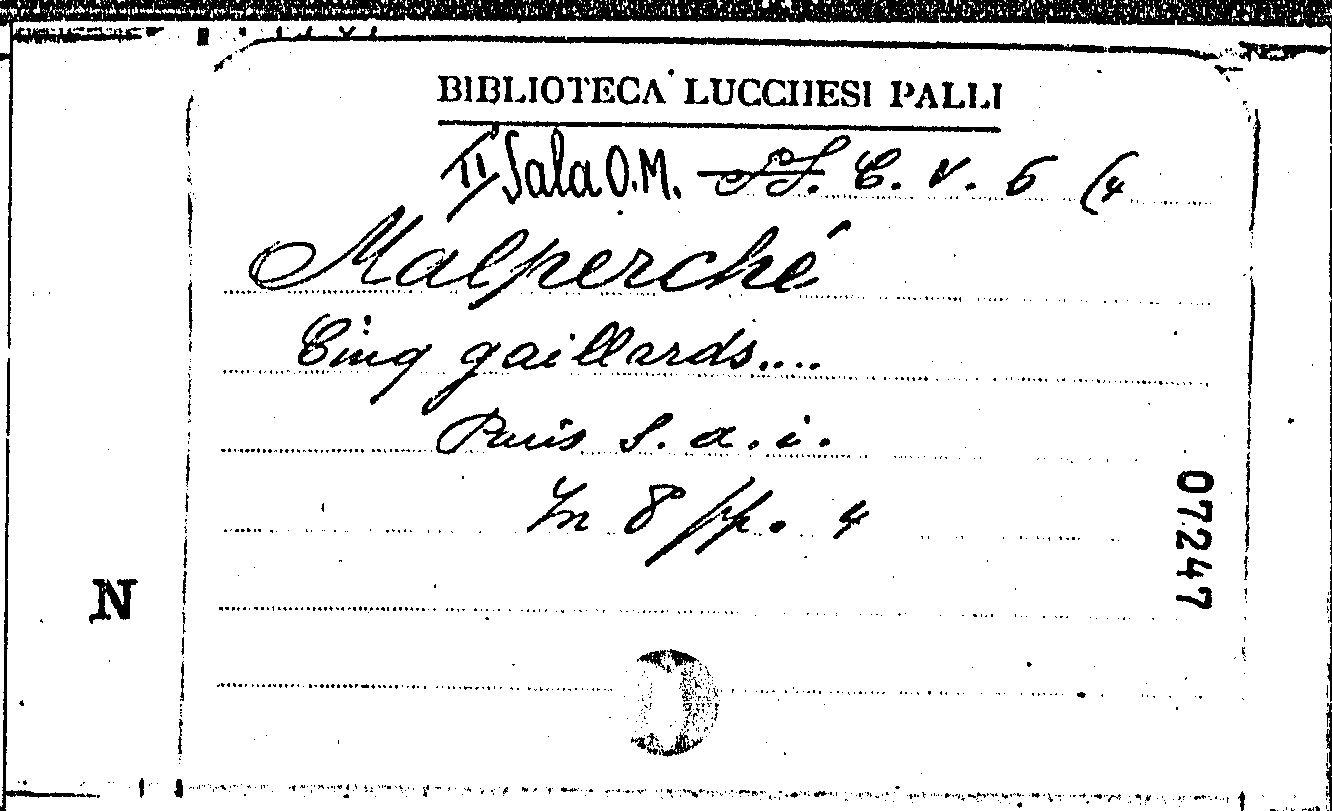 BIBLIOTECA LUCCHESI PALLI
II Sala O.M. C. V. 6 (4
Malperché
Cinq gaillards....
Paris s. a. i.
In 8 pp. 4
07247
N